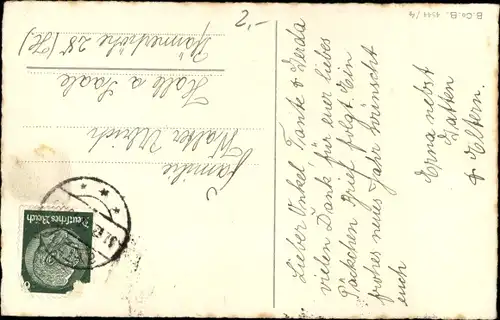 B.Co.B. 4544/4
2.-
Lieber Onkel, Tante & Gerda
vielen Dank für euer liebes
Päckchen. Brief folgt. Ein
frohes neues Jahr wünscht
euch
Erna nebst
Gatten
& Eltern.
Familie
Walter Ulrich
Halle a Saale
28 (H.)
Deutsches Reich
6